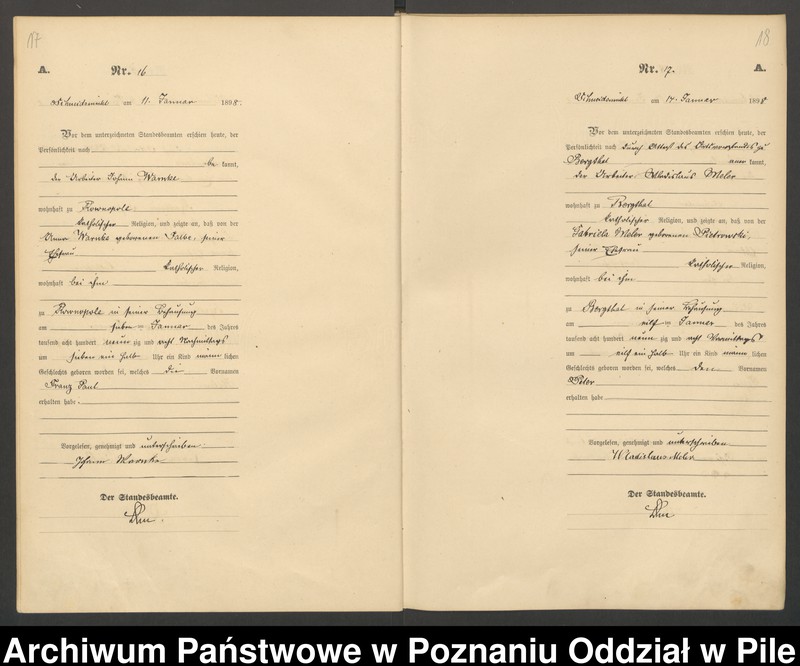 17
A.
Nr. 16
Schneidemühl am 11. Januar 1898.
Vor dem unterzeichneten Standesbeamten erschien heute, der
Persönlichkeit nach
be kannt,
der Arbeiter Johann Warnke
wohnhaft zu Rownopole
katholischer Religion, und zeigte an, daß von der
Anna Warnke geborenen seiner
Ehefrau
katholischer Religion,
wohnhaft bei ihm
zu Rownopole in seiner Behausung
am sieben ten Januar des Jahres
tausend acht hundert neun zig und acht Nachmittags
um sieben ein halb Uhr ein Kind männ lichen
Geschlechts geboren worden sei, welches die Vornamen
Franz Paul
erhalten habe.
Vorgelesen, genehmigt und unterschrieben
Johann Warnke
Der Standesbeamte.
18
Nr. 17.
A.
Schneidemühl am 14. Januar 1898
Vor dem unterzeichneten Standesbeamten erschien heute, der
Persönlichkeit nach durch Attest des Ortsvorstandes zu
Borgthal aner kannt,
der Arbeiter Wladislaus Meler
wohnhaft zu Borgthal
katholischer Religion, und zeigte an, daß von der
Gabriela Meler geborenen Pietrowski,
seiner Ehefrau
katholischer Religion,
wohnhaft bei ihm
zu Borgthal in seiner Behausung
am eilf ten Januar des Jahres
tausend acht hundert neun zig und acht Vormittags
um eilf ein halb Uhr ein Kind männ lichen
Geschlechts geboren worden sei, welches den Vornamen
Peter
erhalten habe
Vorgelesen, genehmigt und unterschrieben
Wladislaus Meler
Der Standesbeamte.
Archiwum Państwowe w Poznaniu Oddział w Pile